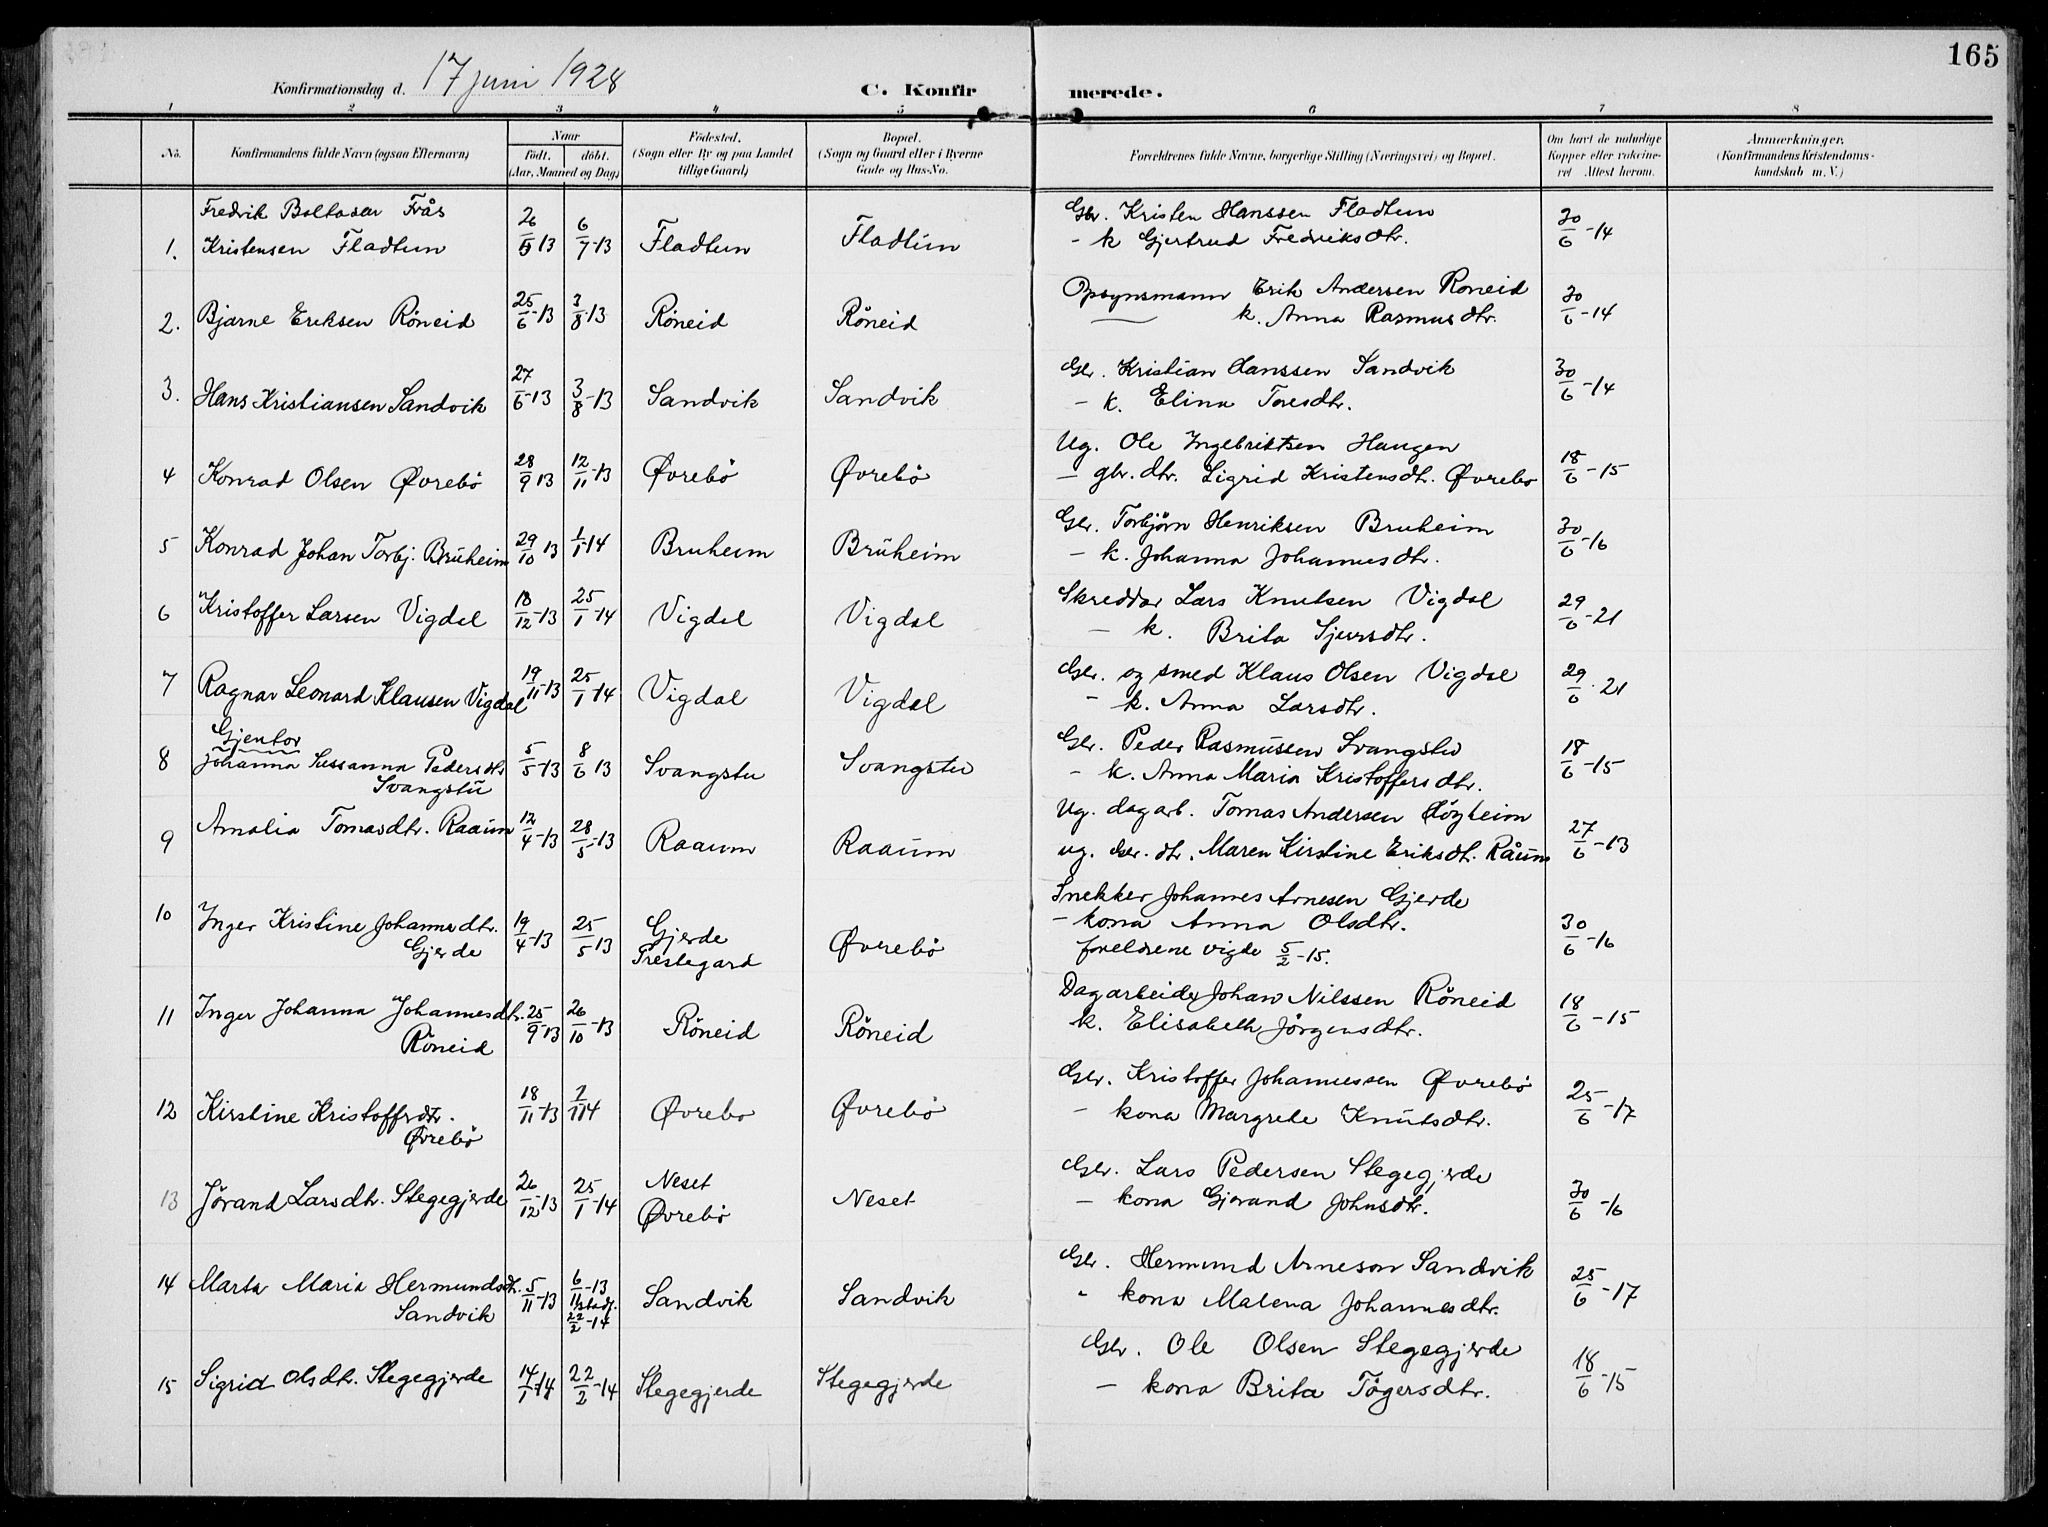 165
Konfirmationsdag d. 17 juni 1928
C. Konfirmerede.
1 2 3 4 5 6 7 8
No.
Konfirmandens fulde Navn (ogsaa Efternavn)
Naar
födt. döbt.
(Aar, Maaned og Dag)
Födested.
(Sogn eller By og paa Landet
tillige Gaard)
Bopæl.
(Sogn og Gaard eller i Byerne
Gade og Hus-No.
Forældrenes fulde Navne, borgerlige Stilling (Næringsvei) og Bopæl.
Om havt de naturlige
Kopper eller vakcine-
ret Attest herom.
Anmærkninger.
(Konfirmandens Kristendoms-
kundskab m. V.)
Fredrik Baltasar Frås
1. Kristensen Fladtun 26/5 13 6/7-13 Fladtun Fladtun
Gbr. Kristen Hanssen Fladtun
- k Gjertrud Fredriksdtr. 30/6-14
2. Bjarne Eriksen Röneid 25/6-13 3/8-13 Röneid Röneid
Opsynsmann Erik Andersen Röneid
k. Anna Rasmusdtr. 30/6-14
3. Hans Kristiansen Sandvik 27/6-13 3/8-13 Sandvik Sandvik
Gbr. Kristian Hanssen Sandvik
- k. Elina Toresdtr. 30/6-14
4 Konrad Olsen Øvrebö 28/9 13 12/11-13 Øvrebö Øvrebö
Ug. Ole Ingebriktsen Haugen
- gbr. dtr. Sigrid Kristensdtr. Øvrebö 18/6-15
5 Konrad Johan Torbj. Bruheim 29/10 13 1/1-14 Bruheim Bruheim
Gbr. Torbjörn Henriksen Bruheim
- k. Johanna Johannesdtr. 30/6-16
6 Kristoffer Larsen Vigdal 18/12-13 25/1-14 Vigdal Vigdal
Skreddar Lars Knutsen Vigdal
- k. Brita Sjursdtr. 29/6-21
7 Ragnar Leonard Klausen Vigdal 19/11-13 25/1-14 Vigdal Vigdal
Gbr. og smed Klaus Olsen Vigdal
- k. Anna Larsdtr. 29/6-21
Gjentor
8 Johanna Sussanna Pedersdtr 5/5-13 8/6 13 Svangstu Svangstu
Svangstu
Gbr. Peder Rasmussen Svangstu
- k. Anna Maria Kristoffersdtr. 18/6-15
9 Amalia Tomasdtr. Raaum 12/4-13 28/5-13 Raaum Raaum
Ug. dagarb. Tomas Andersen Höyheim
ug. Gbr. dtr. Maren Kirstine Eriksdtr. Råum 27/6-13
10 Inger Kristine Johannesdtr. 19/4-13 25/5 13 Gjerde
Gjerde Prestegard Øvrebö
Snekker Johannes Arnesen Gjerde
- kona Anna Olsdtr.
foreldrene vigde 5/2-15. 30/6-16
11 Inger Johanna Johannesdtr. 25/9-13 26/10-13 Röneid Röneid
Röneid
Dagarbeider Johan Nilssen Röneid
k. Elisabeth Jörgensdtr. 18/6-15
12 Kirstine Kristoffrdtr. 18/11-13 1/1 14 Øvrebo Øvrebö
Øvrebö
Gbr. Kristoffer Johannessen Øvrebö
- kona Margrete Knutsdtr. 25/6-17
13 Jörand Larsdtr. Stegegjerde 26/12-13 25/1-14 Neset
Øvrebö Neset
Gbr. Lars Pedersen Stegegjerde
- kona Gjørand Johnsdtr. 30/6-16
14 Marta Maria Hermundsdtr. 5/11-13 6/11-13
stadf.
22/2-14 Sandvik Sandvik
Sandvik
Gbr. Hermund Arneson Sandvik
" kona Malena Johannesdtr. 25/6-17
15 Sigrid Olsdtr. Stegegjerde 14/1-14 22/2-14 Stegegjerde Stegegjerde
Gbr. Ole Olsen Stegegjerde
- kona Brita Tögersdtr. 18/6-15